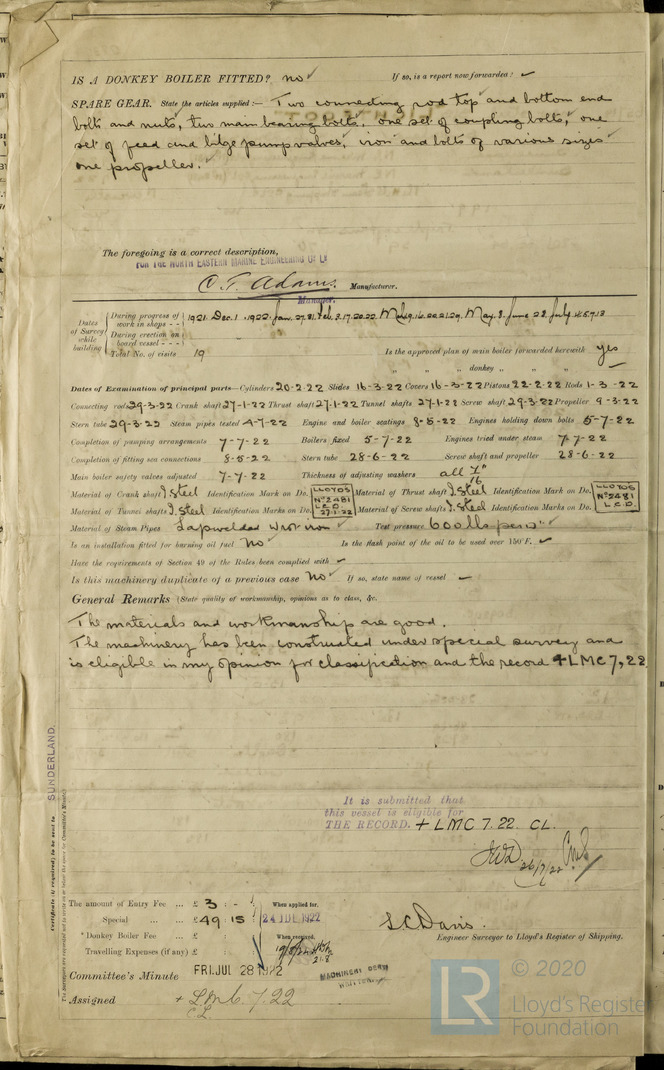 IS A DONKEY BOILER FITTED? no ✓ If so, is a report now forwarded? ✓
SPARE GEAR. State the articles supplied:— Two connecting rod top and bottom end
bolts and nuts, two main bearing bolts, one set of coupling bolts, one
set of feed and bilge pump valves, iron and bolts of various sizes
one propeller.
The foregoing is a correct description,
FOR THE NORTH EASTERN MARINE ENGINEERING Co Ld
C. T. Adam. Manufacturer.
Manager.
Dates of Survey while building
During progress of work in shops - - 1921. Dec. 1. 1922. Jan. 27. 31. Feb. 2. 17. 20. 22. Mch 9. 16. 22. 29. May. 8. June 28. July 4. 5. 7. 13
During erection on board vessel - -
Total No. of visits 19 Is the approved plan of main boiler forwarded herewith yes
" " " donkey " " "
Dates of Examination of principal parts—Cylinders 20-2-22 Slides 16-3-22 Covers 16-3-22 Pistons 22-2-22 Rods 1-3-22
Connecting rods 29-3-22 Crank shaft 27-1-22 Thrust shaft 27-1-22 Tunnel shafts 27-1-22 Screw shaft 29-3-22 Propeller 9-3-22
Stern tube 29-3-22 Steam pipes tested 4-7-22 Engine and boiler seatings 8-5-22 Engines holding down bolts 5-7-22
Completion of pumping arrangements 7-7-22 Boilers fixed 5-7-22 Engines tried under steam 7-7-22
Completion of fitting sea connections 8-5-22 Stern tube 28-6-22 Screw shaft and propeller 28-6-22
Main boiler safety valves adjusted 7-7-22 Thickness of adjusting washers all 7/16"
Material of Crank shaft I. Steel Identification Mark on Do. LLOYDS Nº 2481 L.C.D. 27.1.22 Material of Thrust shaft I. Steel Identification Mark on Do. LLOYDS Nº 2481 L.C.D.
Material of Tunnel shafts I. Steel Identification Mark on Do. Material of Screw shafts I. Steel Identification Mark on Do.
Material of Steam Pipes Lapwelded Wrot iron Test pressure 600 lbs per □"
Is an installation fitted for burning oil fuel no Is the flash point of the oil to be used over 150°F. ✓
Have the requirements of Section 49 of the Rules been complied with ✓
Is this machinery duplicate of a previous case no If so, state name of vessel ✓
General Remarks (State quality of workmanship, opinions as to class, &c.
The materials and workmanship are good.
The machinery has been constructed under special survey and
is eligible in my opinion for classification and the record +LMC 7,22
It is submitted that
this vessel is eligible for
THE RECORD. + LMC 7. 22. CL.
26/7/22
SUNDERLAND.
Certificate (if required) to be sent to
The amount of Entry Fee ... £ 3 : - : When applied for,
Special ... ... £ 49 : 15 : 24 JUL 1922
Donkey Boiler Fee ... £ : : When received,
Travelling Expenses (if any) £ : :
L C Davis.
Engineer Surveyor to Lloyd's Register of Shipping.
Committee's Minute FRI. JUL 28 1922
MACHINERY CERT WRITTEN
Assigned + L.M.C. 7.22
C.L.
© 2020
LR
Lloyd's Register
Foundation